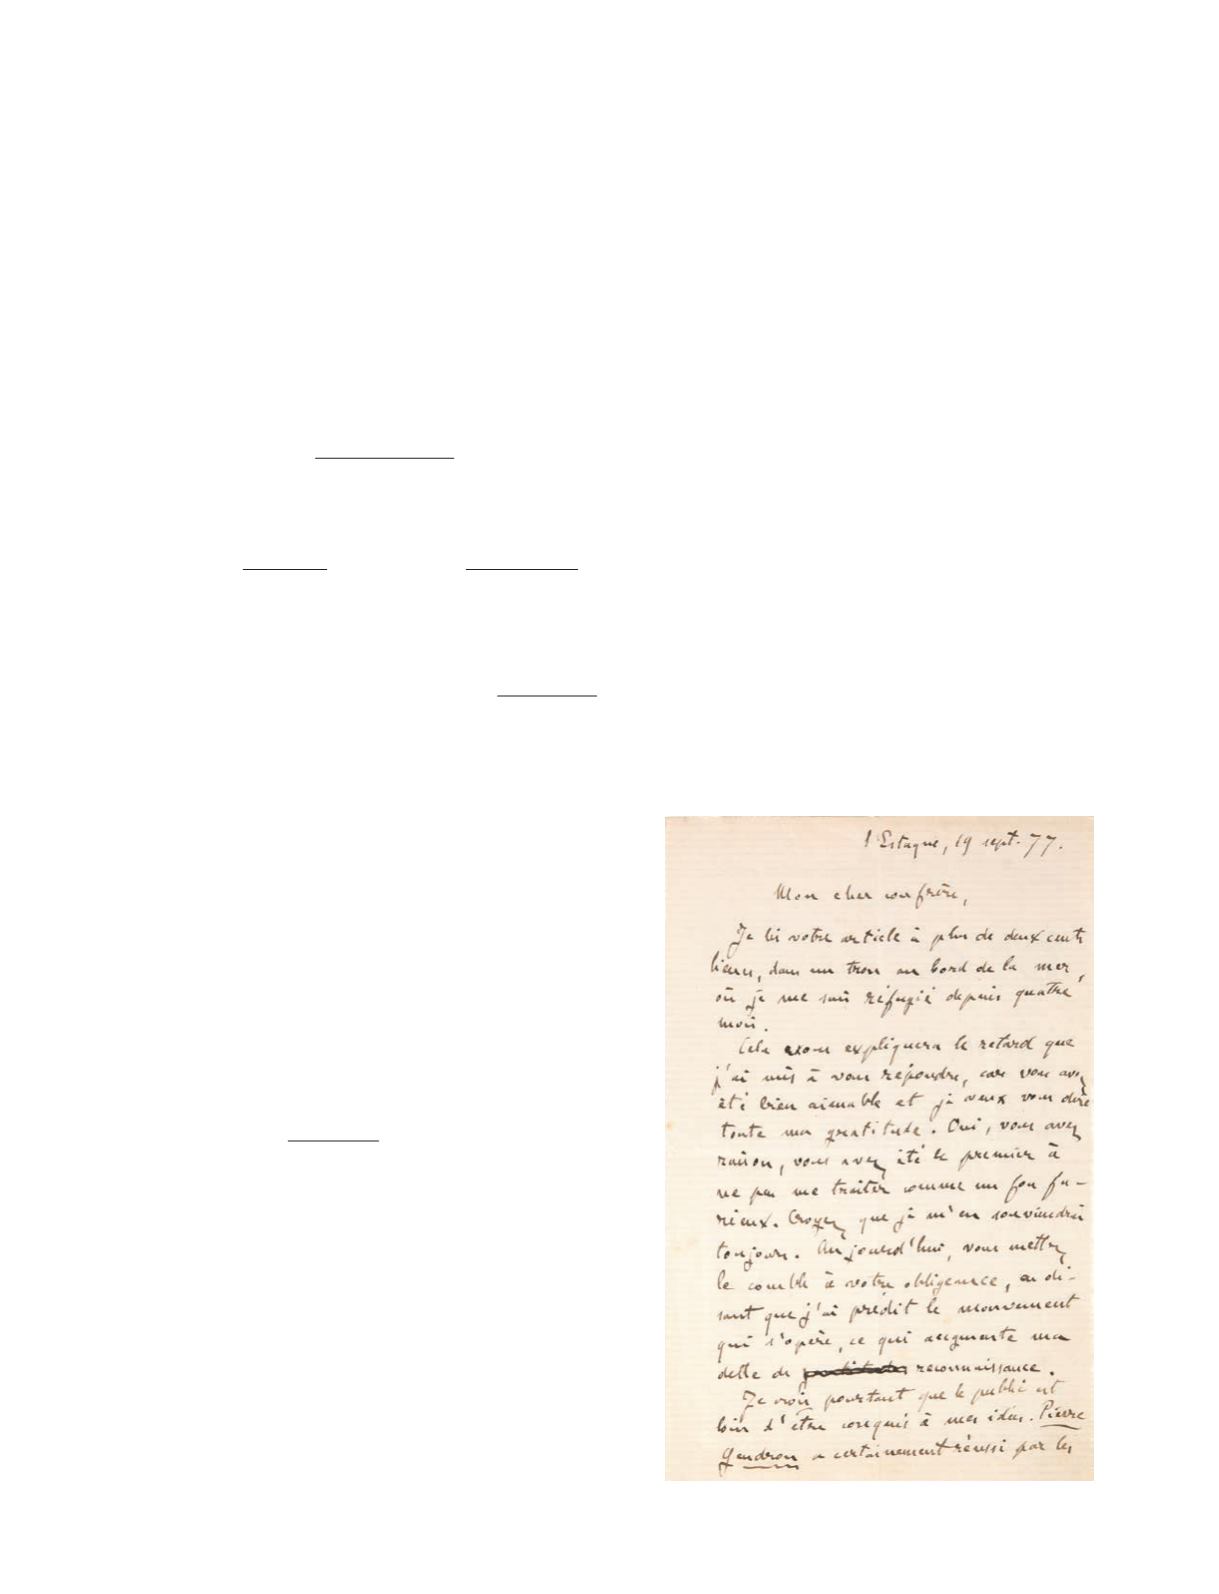 l'Estaque, 19 sept. 77.
Mon cher confrère,
Je lis votre article à plus de deux cents
lieues, dans un trou au bord de la mer,
où je me suis réfugié depuis quatre
mois.
Cela vous expliquera le retard que
j'ai mis à vous répondre, car vous avez
été bien aimable et je veux vous dire
toute ma gratitude. Oui, vous avez
raison, vous avez été le premier à
ne pas me traiter comme un fou fu-
rieux. Croyez que je m'en souviendrai
toujours. Aujourd'hui, vous mettez
le comble à votre obligeance, en di-
sant que j'ai prédit le mouvement
qui s'opère, ce qui augmente ma
dette de reconnaissance.
Je crois pourtant que le public est
loin d'être conquis à mes idées. Pierre
Gendron a certainement réussi par les